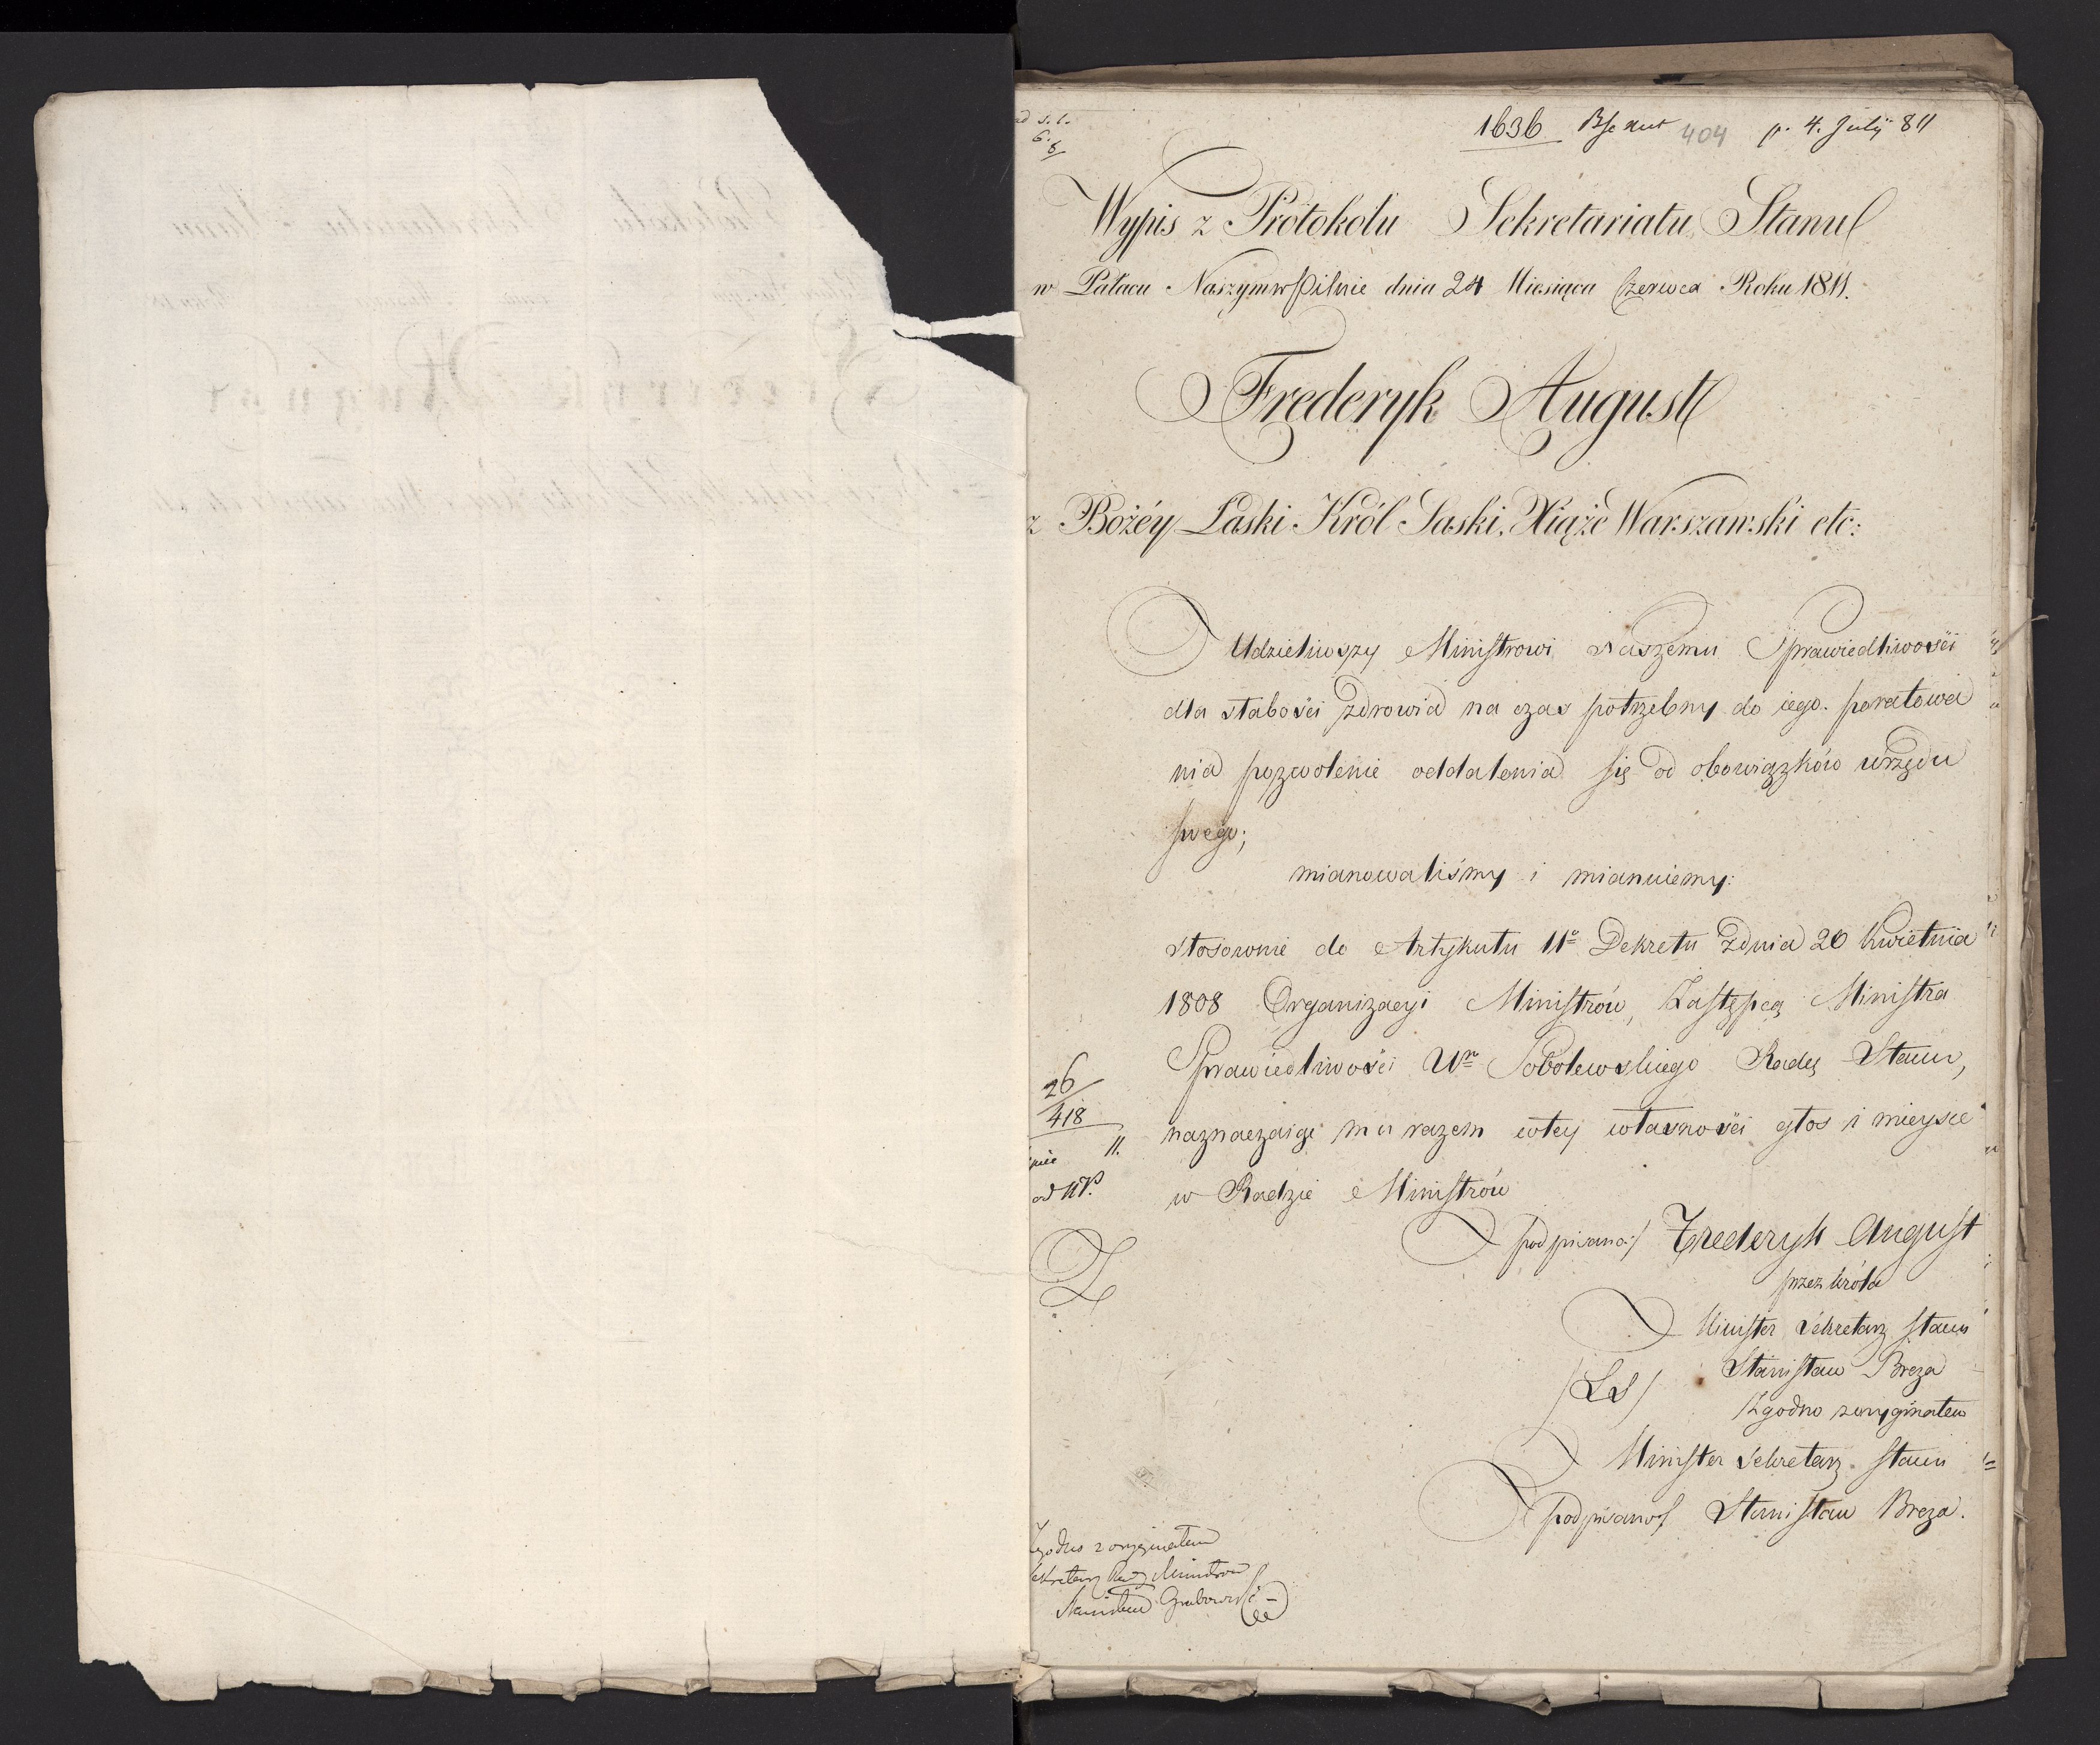 1636 404 p. 4. July 811
Wypis z Protokółu Sekretariatu Stanu
w Pałacu Naszym w Pilnie dnia 24 Miesiąca Czerwca Roku 1811.
Frederyk August
z Bożéy Łaski Król Saski, Xiąże Warszawski etc:
Udzieliwszy Ministrowi Naszemu Sprawiedliwości
dla słabości zdrowia na czas potrzebny do iego poratowa
nia pozwolenie oddalenia się od obowiązków urzędu
swego;
mianowaliśmy i mianuiemy:
stosownie do Artykułu 11º Dekretu z dnia 26 Kwietnia
1808 Organizacyi Ministrów, Zastępcą Ministra
Sprawiedliwości Urº Sobolewskiego Radcę Stanu,
26
418
11.
naznaczaiąc mu razem w tey własności głos i mieysce
w Radzie Ministrów
podpisano:/ Frederyk August
przez Króla
Minister Sekretarz Stanu
Stanisław Breza
/LS/
Zgodno z oryginałem
Minister Sekretarz Stanu
podpisano/ Stanisław Breza.
Zgodno z oryginałem
Sekretarz Rady Ministrów
Stanisław Grabowski